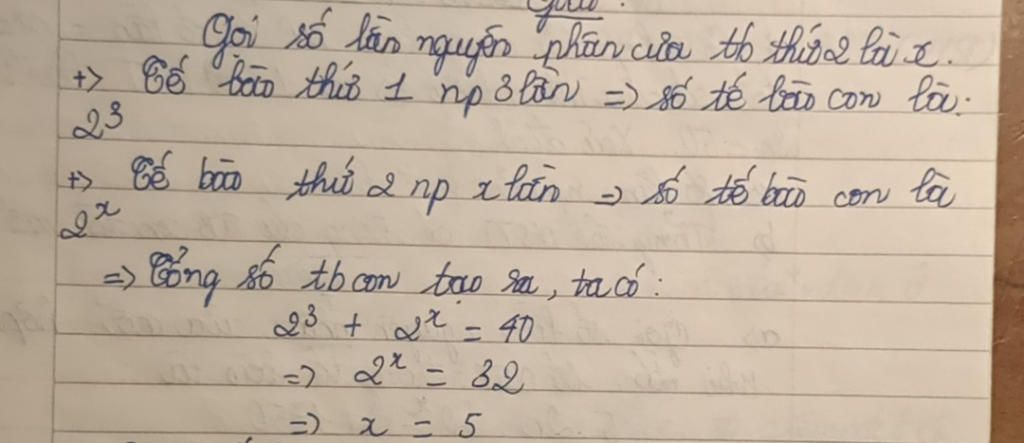 Giải.
Gọi số lần nguyên phân của tb thứ 2 là x.
+> Tế bào thứ 1 np 3 lần => số tế bào con là:
2³
+> Tế bào thứ 2 np x lần => số tế bào con là
2ˣ
=> Tổng số tb con tạo ra, ta có:
2³ + 2ˣ = 40
=> 2ˣ = 32
=> x = 5